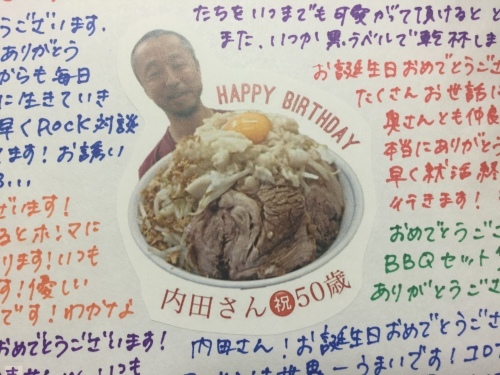 うございます.
ありがとう
からも毎日
に生きていき
早くROCK対談
てます!お誘い
...
ざいます!
るとホンマに
ります!いつも
す!優しい
です!わかなよ
おめでとうございます!
たちをいつまでも可愛がって頂けると
また、いつか黒ラベルで乾杯しま
お誕生日おめでとうござ
たくさんお世話に
奥さんとも仲良
本当にありがとう
早く就活終
行きます!
おめでとうござ
BBQセット
ありがとうござ
HAPPY BIRTHDAY
内田さん祝50歳
内田さん!お誕生日おめでとうござ
世界一うまいです!コロ